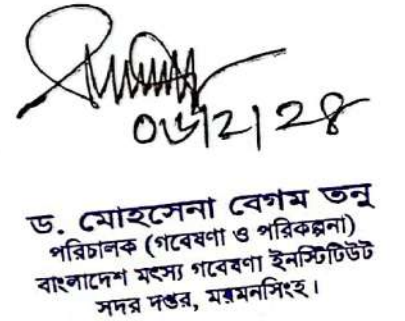 ০৬/2/২৪
ড. মোহসেনা বেগম তনু
পরিচালক (গবেষণা ও পরিকল্পনা)
বাংলাদেশ মৎস্য গবেষণা ইনস্টিটিউট
সদর দপ্তর, ময়মনসিংহ।